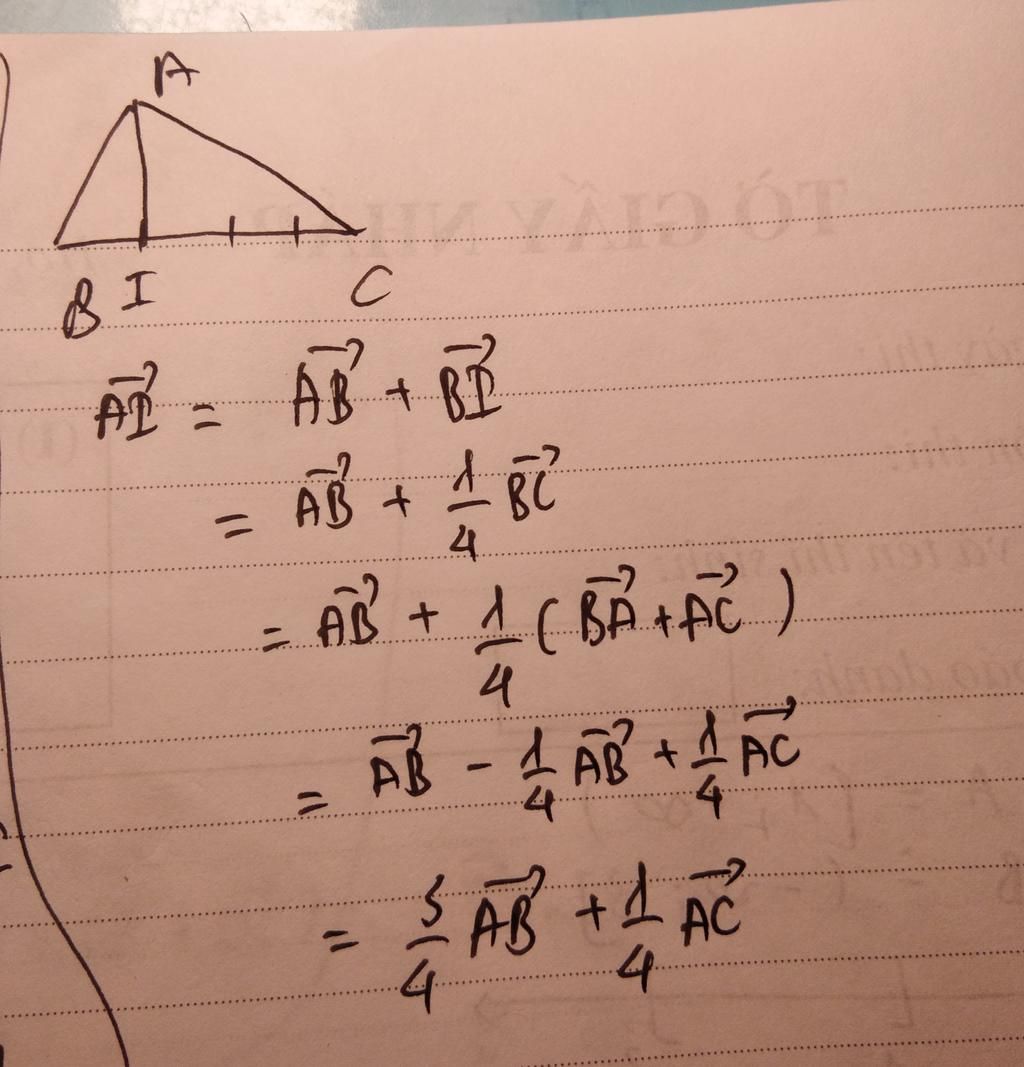 A
B I C
$\overrightarrow{AI} = \overrightarrow{AB} + \overrightarrow{BI}$
$= \overrightarrow{AB} + \frac{1}{4} \overrightarrow{BC}$
$= \overrightarrow{AB} + \frac{1}{4} ( \overrightarrow{BA} + \overrightarrow{AC} )$
$= \overrightarrow{AB} - \frac{1}{4} \overrightarrow{AB} + \frac{1}{4} \overrightarrow{AC}$
$= \frac{3}{4} \overrightarrow{AB} + \frac{1}{4} \overrightarrow{AC}$